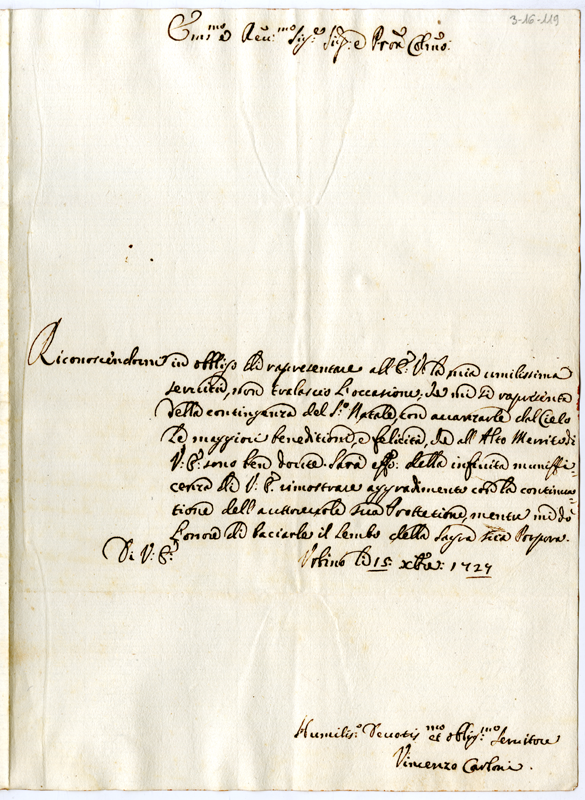 3-16-119
Em:mo e Rev:mo Sig:re Sig:re e Pron Colmo:
Riconoscendomi in obbligo di rapresentare all'E: V: la mia umilissima
servitù, non tralascio l'occasione, che mi si rapresenta
della contingenza del S:o Natale, con avanzarle dal Cielo
le maggiori beneditioni, e felicità, che all'Alto Merito di
V: E: sono ben dovute. Sarà effo: della infinita muniffi=
cenza di V: E: rimostrare aggradimento con la continua=
tione dell'autorevole sua Protettione, mentre mi dò
l'onore di baciarle il lembo della Sagra sua Porpora.
Di V: E:
Urbino li 15 xbre: 1727
Humilis:o Devotis:mo et obblig:mo Servitore
Vincenzo Carloni.